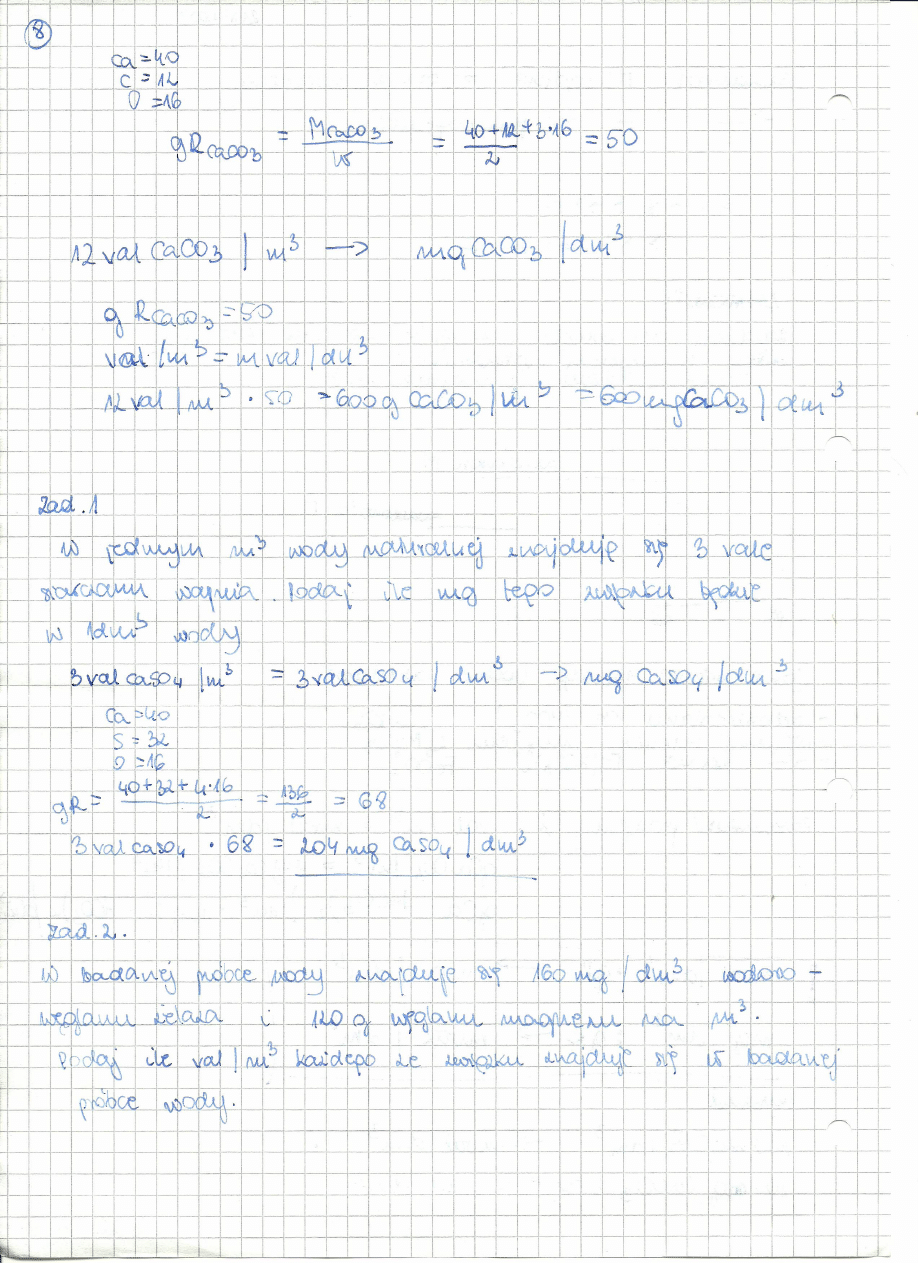 8
Ca = 40
C = 12
O = 16
gR CaCO3 = M CaCO3 / w = 40+12+3·16 / 2 = 50
12 val CaCO3 / m³ → mg CaCO3 / dm³
gR CaCO3 = 50
val / m³ = m val / dm³
12 val / m³ · 50 = 600 g CaCO3 / m³ = 600 mg CaCO3 / dm³
Zad. 1
W jednym m³ wody naturalnej znajduje się 3 vale
siarczanu wapnia. Podaj ile mg tego związku będzie
w 1dm³ wody
3 val CaSO4 / m³ = 3 val CaSO4 / dm³ → mg CaSO4 / dm³
Ca = 40
S = 32
O = 16
gR = 40+32+4·16 / 2 = 136 / 2 = 68
3 val CaSO4 · 68 = 204 mg CaSO4 / dm³
Zad. 2.
W badanej próbce wody znajduje się 160 mg / dm³ wodoro -
węglanu żelaza i 120 g węglanu magnezu na m³.
Podaj ile val / m³ każdego ze związku znajduje się w badanej
próbce wody.